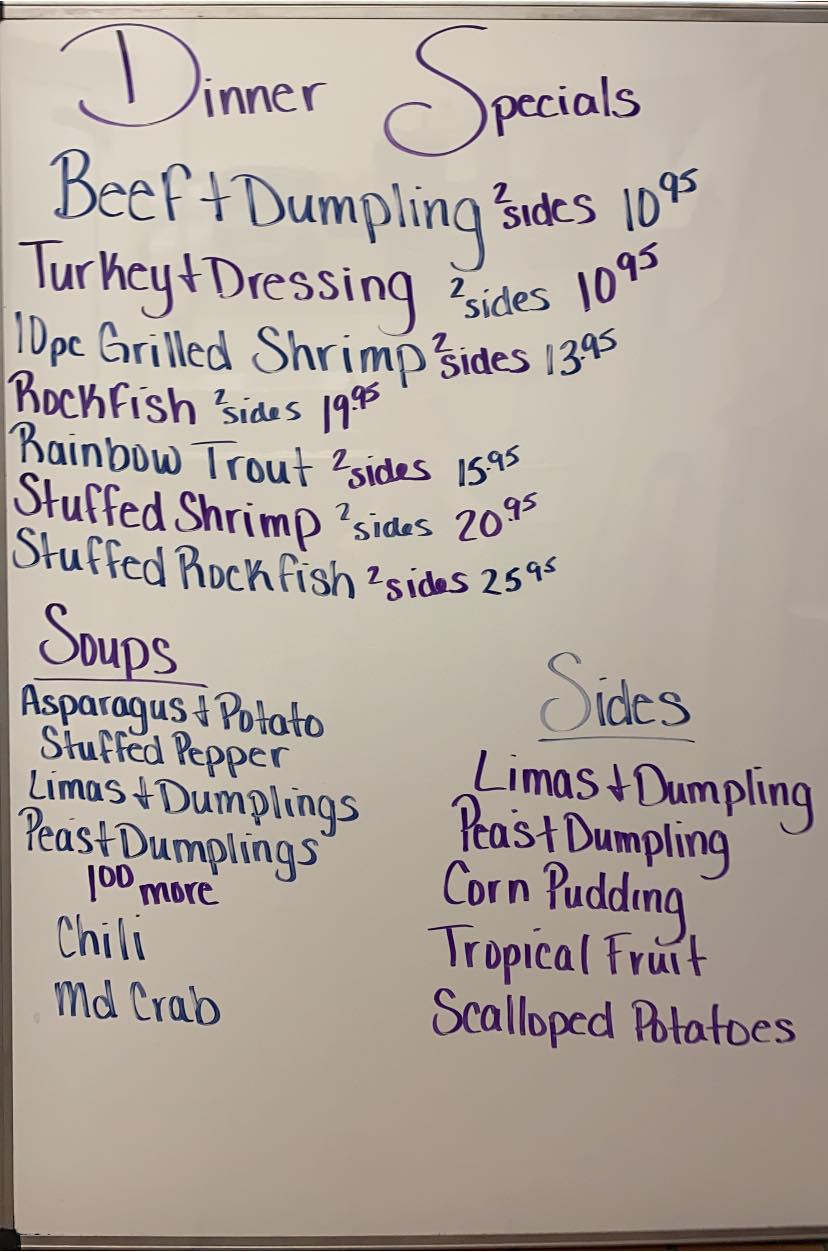 Dinner Specials
Beef + Dumpling 2 sides 10 95
Turkey + Dressing 2 sides 10 95
10pc Grilled Shrimp 2 sides 13.95
Rockfish 2 sides 19.95
Rainbow Trout 2 sides 15.95
Stuffed Shrimp 2 sides 20.95
Stuffed Rockfish 2 sides 25 95
Soups
Asparagus + Potato
Stuffed Pepper
Limas + Dumplings
Peas + Dumplings
1 00 more
Chili
Md Crab
Sides
Limas + Dumpling
Peas + Dumpling
Corn Pudding
Tropical Fruit
Scalloped Potatoes